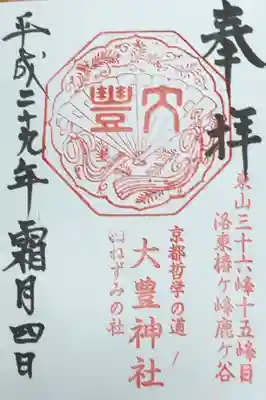 奉拝
東山三十六峰十五峰目
洛東椿ヶ峰鹿ヶ谷
大豐
京都哲学の道
大豊神社
ねずみの社
平成二十九年霜月四日